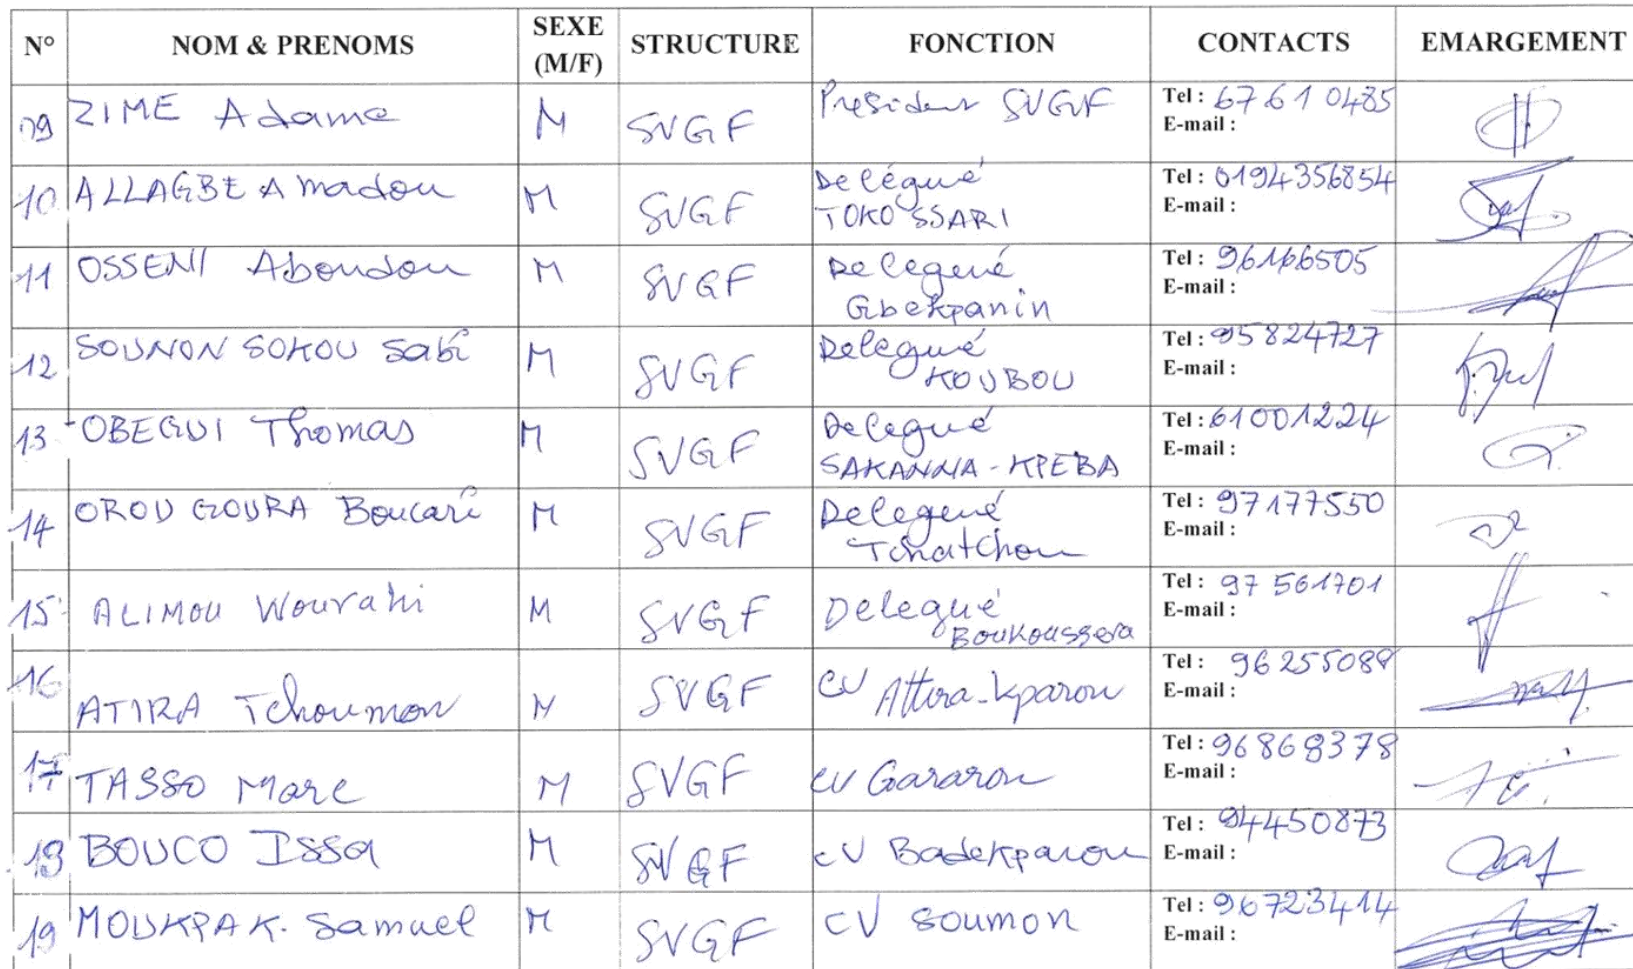 N° NOM & PRENOMS SEXE (M/F) STRUCTURE FONCTION CONTACTS EMARGEMENT
09 ZIME Adama M SVGF Président SVGF Tel : 67 61 0485
E-mail :
10 ALLAGBE Amadou M SVGF Delégué Tel : 0194356854
TOKO SSARI E-mail :
11 OSSENI Aboudou M SVGF Delegué Tel : 96166505
Gbekpanin E-mail :
12 SOUNON SOKOU Sabi M SVGF Delegué Tel : 95824727
KOUBOU E-mail :
13 OBEGUI Thomas M SVGF Delegué Tel : 61001224
SAKANNA-KPEBA E-mail :
14 OROU GOURA Boucari M SVGF Delegué Tel : 97177550
Tchatchou E-mail :
15 ALIMOU Wourahi M SVGF Delegué Tel : 97 561701
Boukoussera E-mail :
16 ATIRA Tchoumon M SVGF CV Attira-Kparou Tel : 96255088
E-mail :
17 TASSO Marc M SVGF CV Gararou Tel : 96869378
E-mail :
18 BOUCO Issa M SVGF CV Badekparou Tel : 94450873
E-mail :
19 MOUKPA K. Samuel M SVGF CV Soumon Tel : 96723414
E-mail :